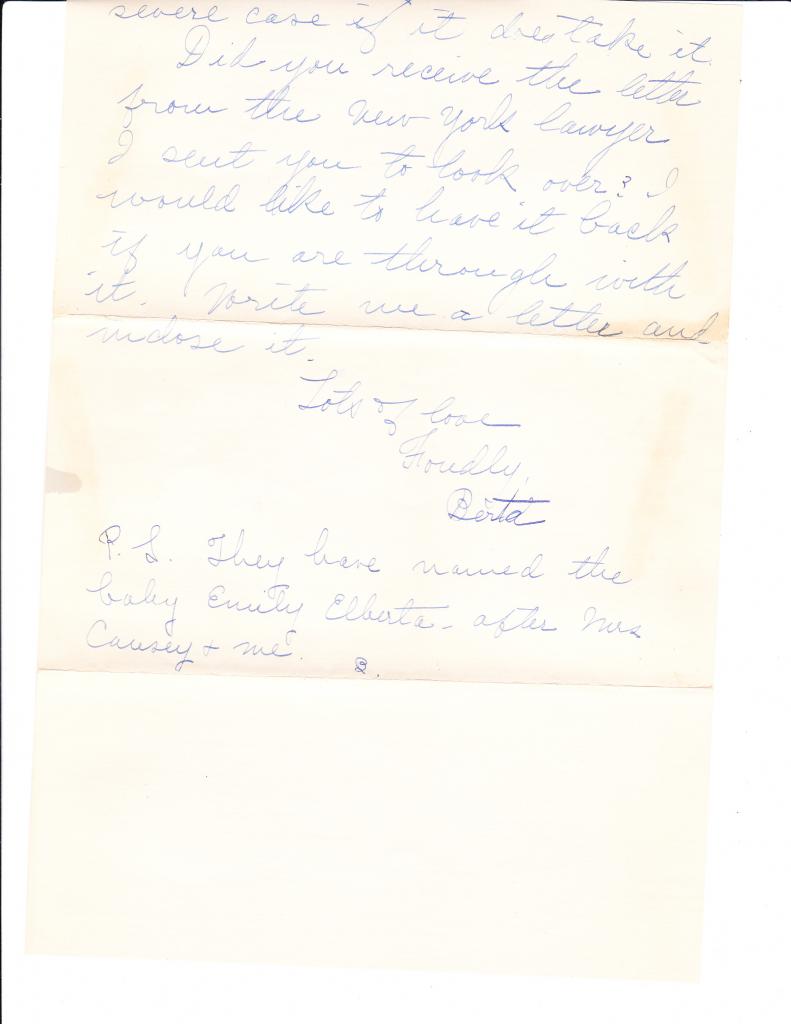 severe case if it does take it.
Did you receive the letter
from the New York lawyer
I sent you to look over? I
would like to have it back
if you are through with
it. Write me a letter and
inclose it.
Lots of love
Fondly,
Berta
P.S. They have named the
baby Emily Elberta - after Mrs
Causey + me.
B.